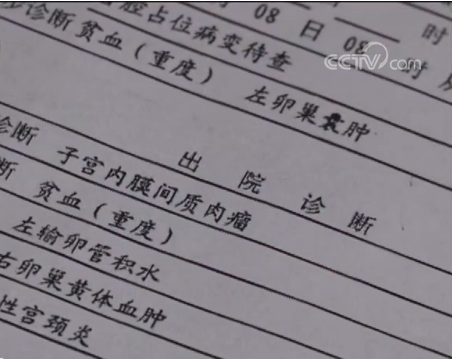 08 日 08 时
腔占位病变待查
步诊断 贫血（重度） 左卵巢囊肿
出 院 诊 断
诊断 子宫内膜间质肉瘤
断 贫血（重度）
左输卵管积水
右卵巢黄体血肿
性宫颈炎
CCTV.com